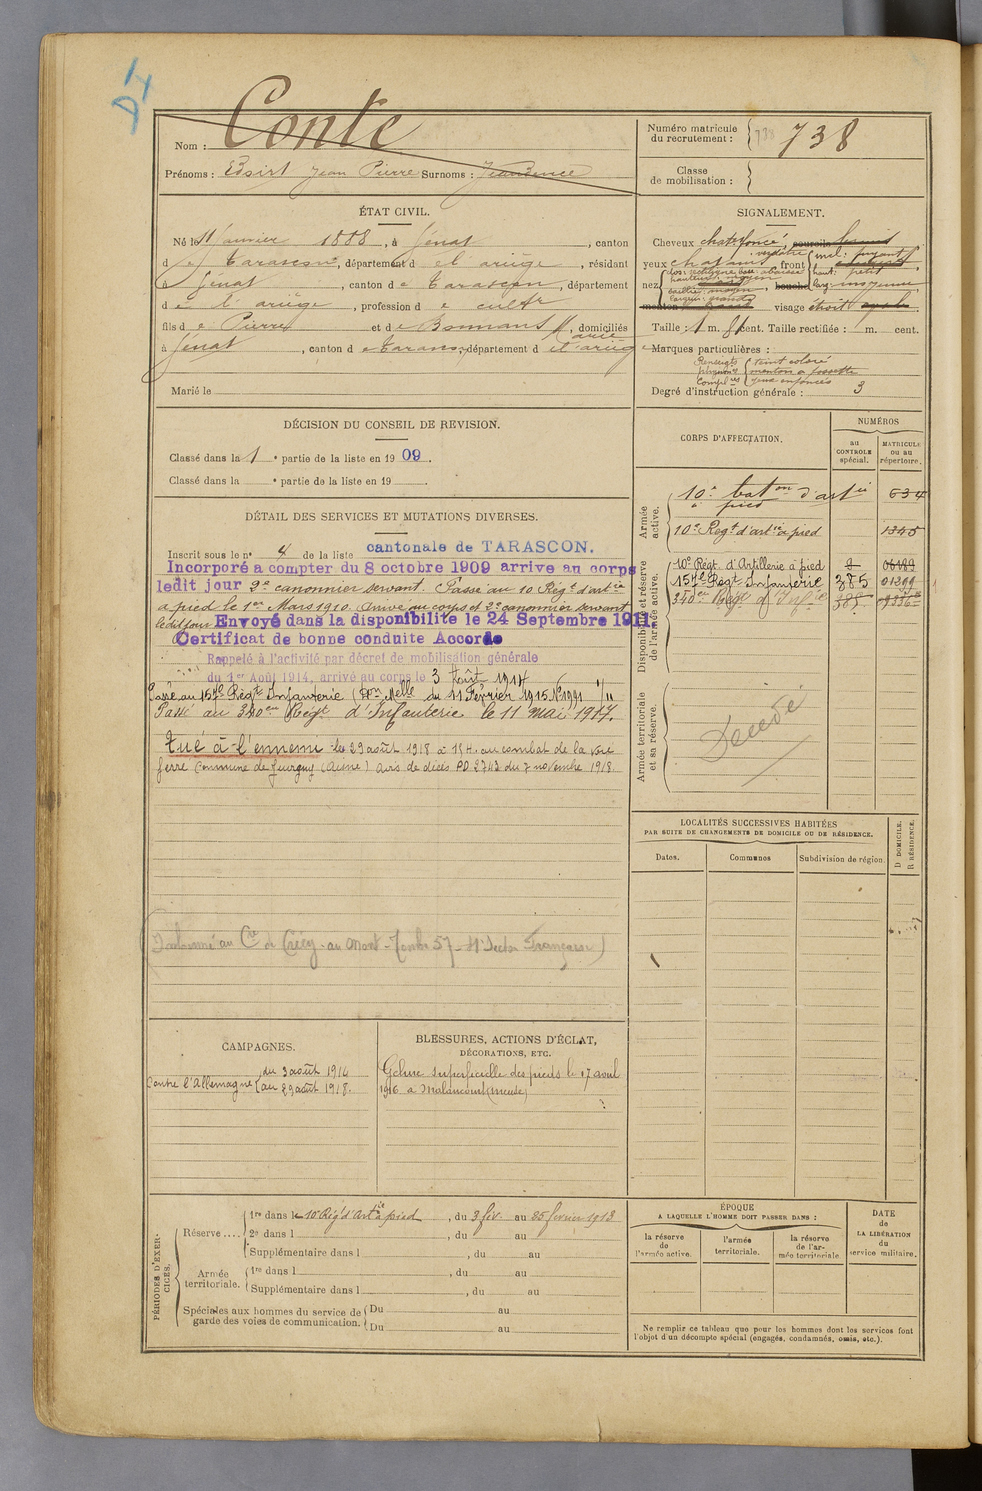 Nom : Conte
Prénoms : Jean Pierre Surnoms :
Numéro matricule
du recrutement : } 738 738
Classe
de mobilisation : }
ÉTAT CIVIL.
Né le 11 Janvier 1888, à Génat, canton
d e Tarascon, département d e l'ariège, résidant
à Génat, canton d e Tarascon, département
d e l'ariège, profession d e cultr
fils d e Pierre et d e Bonnans Marie, domiciliés
à Génat, canton d e Tarascon, département d e l'ariège
Marié le
SIGNALEMENT.
Cheveux chat. foncé, sourcils
yeux chatains verdâtre, front { incl. : fuyant
haut. : petit
larg. : moyenne
nez { dos : rectiligne base : abaissée
hauteur : moyen
saillie : moyen
largeur : grande
bouche
menton visage étroit
Taille : 1 m. cent. Taille rectifiée : 1 m. cent.
Marques particulières :
Renseigts physionoes Complres { teint coloré
menton à fossette
yeux enfoncés
Degré d'instruction générale : 3
DÉCISION DU CONSEIL DE REVISION.
Classé dans la 1e partie de la liste en 1909.
Classé dans la e partie de la liste en 19 .
DÉTAIL DES SERVICES ET MUTATIONS DIVERSES.
Inscrit sous le n° 4 de la liste cantonale de TARASCON.
Incorporé a compter du 8 octobre 1909 arrive au corps
ledit jour 2e canonnier servant. Passé au 10 Régt d'artie
a pied le 1er Mars 1910. Arrivé au corps et 2e canonnier servant
ledit jour Envoyé dans la disponibilite le 24 Septembre 1911.
Certificat de bonne conduite Accordé
Rappelé à l'activité par décret de mobilisation générale
du 1er Août 1914, arrivé au corps le 3 Août 1914
Passé au 154e Régt Infanterie (Don Melle du 11 Février 1915 N°1991
Passé au 340eme Régt d'Infanterie le 11 mai 1917.
Tué à l'ennemi le 29 août 1918 à 15h. au combat de la voie
ferré Commune de Juvigny (Aisne) avis de décès PD 2743 du 7 novembre 1918
Inhumé au Cre de Crécy-au-Mont - Tombe 57
CORPS D'AFFECTATION.
NUMÉROS
au
CONTROLE
spécial.
MATRICULE
ou au
répertoire.
Armée
active.
10e baton d'artie
à pied 634
10e Regt d'artie à pied 1345
Disponibilité et réserve
de l'armée active.
10e Régt. d'Artillerie à pied 06189
154e Régt Infanterie 385 01299
340eme Régt d'Infie 385
Armée territoriale
et sa réserve.
Décédé
LOCALITÉS SUCCESSIVES HABITÉES
PAR SUITE DE CHANGEMENTS DE DOMICILE OU DE RÉSIDENCE.
Dates.
Communes
Subdivision de région.
D DOMICILE.
R RÉSIDENCE.
CAMPAGNES.
Contre l'Allemagne { du 3 août 1914
au 29 août 1918.
BLESSURES, ACTIONS D'ÉCLAT,
DÉCORATIONS, ETC.
Gelure superficielle des pieds le 17 avril
1916 a Malancourt (meuse)
PÉRIODES D'EXER-
CICES.
Réserve .... { 1re dans l e 10 Régt d'Artie à pied, du 3 fév. au 25 fevrier 1913
2e dans l , du au
Supplémentaire dans l , du au
Armée
territoriale. { 1re dans l , du au
Supplémentaire dans l , du au
Spéciales aux hommes du service de
garde des voies de communication. { Du au
Du au
ÉPOQUE
A LAQUELLE L'HOMME DOIT PASSER DANS :
la réserve
de
l'armée active.
l'armée
territoriale.
la réserve
de l'ar-
mée territoriale
DATE
de
LA LIBÉRATION
du
service militaire.
Ne remplir ce tableau que pour les hommes dont les services font
l'objet d'un décompte spécial (engagés, condamnés, omis, etc.).